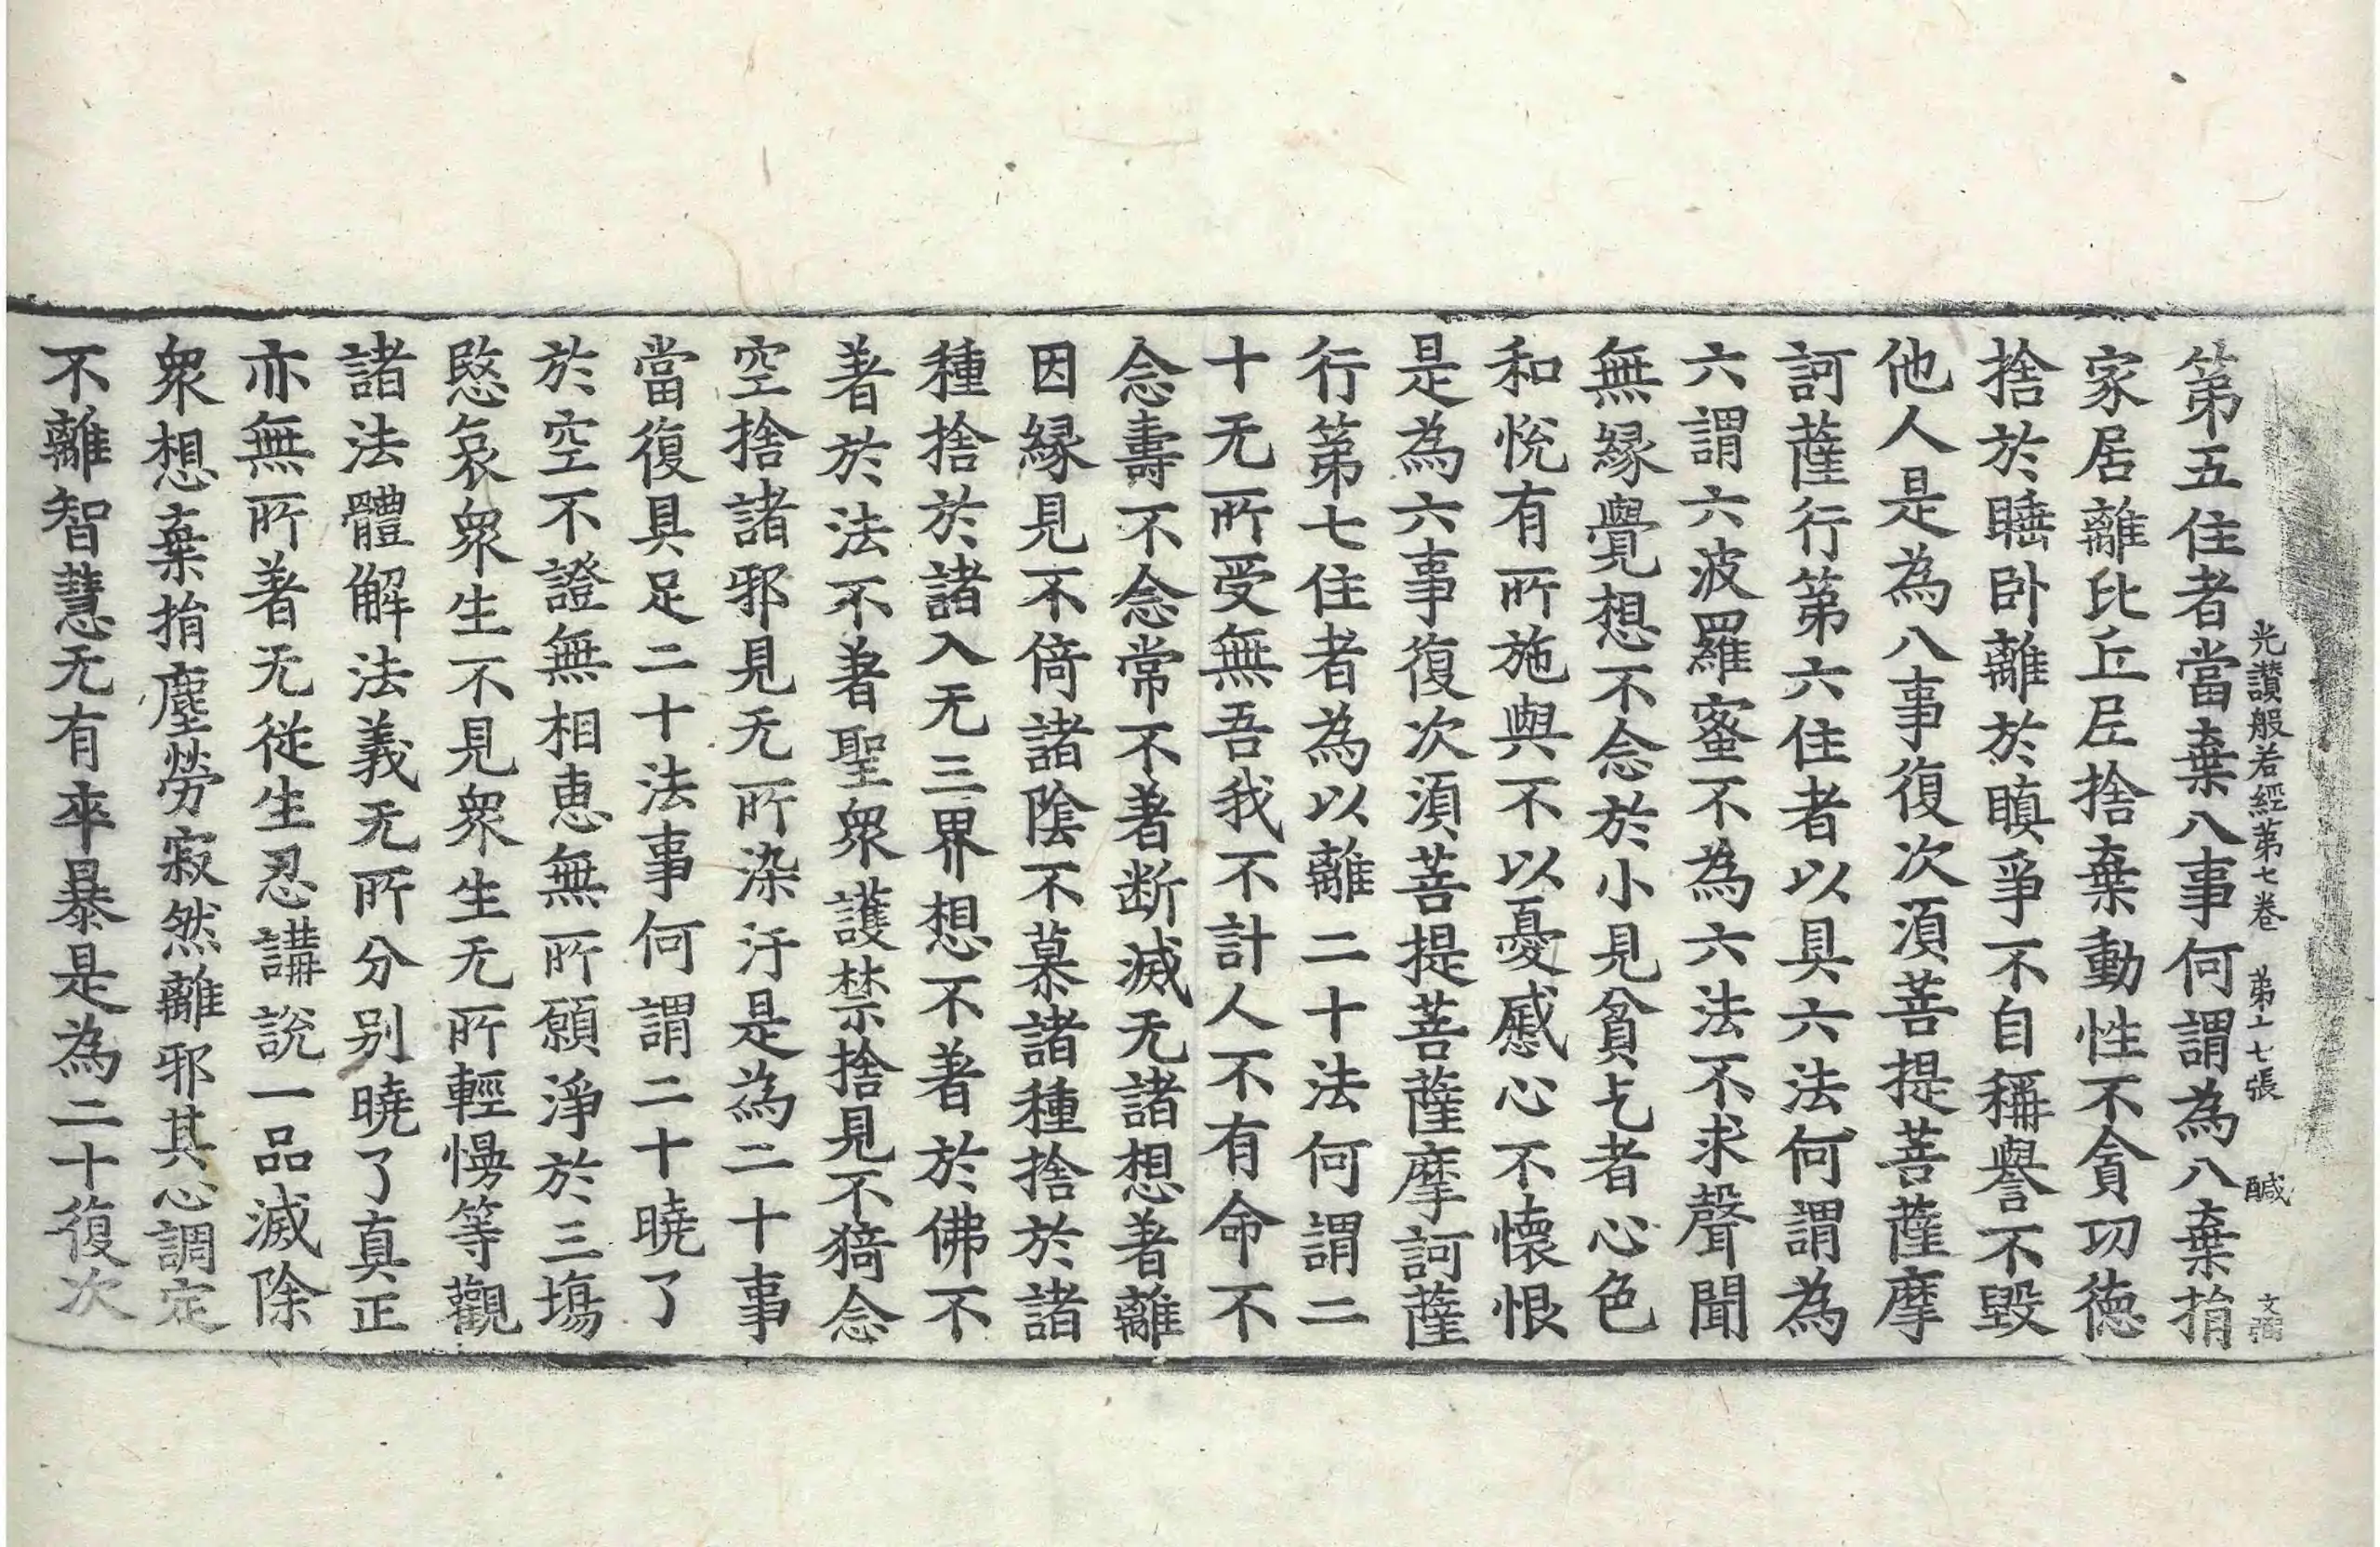 光讃般若經第七卷　第十七張　醎　文
第五住者當棄八事何謂為八棄捐
家居離比丘尼捨棄動性不貪功德
捨於睡卧離於瞋爭不自稱譽不毀
他人是為八事復次湏菩提菩薩摩
訶薩行第六住者以具六法何謂為
六謂六波羅蜜不為六法不求聲聞
無縁覺想不念於小見貧乞者心色
和悅有所施與不以憂慼心不懷恨
是為六事復次湏菩提菩薩摩訶薩
行第七住者為以離二十法何謂二
十无所受無吾我不計人不有命不
念壽不念常不著断滅无諸想著離
因縁見不倚諸陰不慕諸種捨於諸
種捨於諸入无三界想不著於佛不
著於法不著聖衆護禁捨見不猗念
空捨諸邪見无所染汙是為二十事
當復具足二十法事何謂二十曉了
於空不證無相恵無所願淨於三塲
愍哀衆生不見衆生无所輕慢等觀
諸法體解法義无所分别曉了真正
亦無所著无從生忍講說一品滅除
衆想棄捐塵勞寂然離邪其心調定
不離智慧无有卒暴是為二十復次